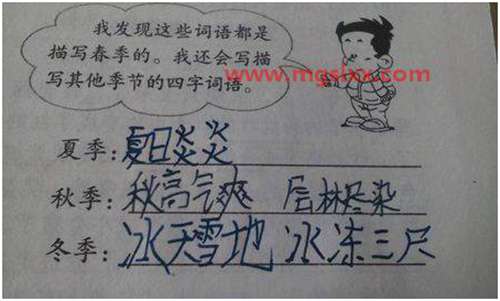 我发现这些词语都是
描写春季的。我还会写描
写其他季节的四字词语。
www.mgslxx.com
夏季:夏日炎炎
秋季:秋高气爽 层林尽染
冬季:冰天雪地 冰冻三尺